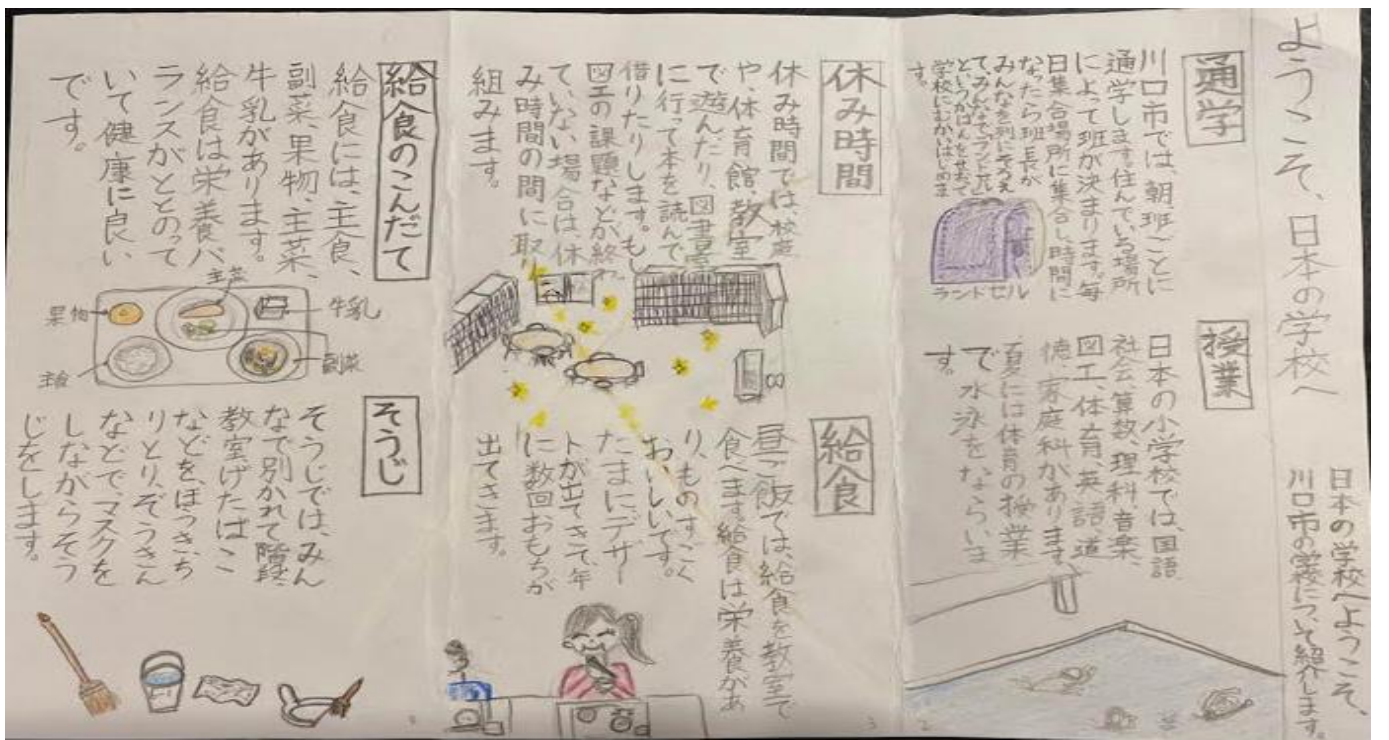 ようこそ、日本の学校へ
日本の学校へようこそ、
川口市の学校について紹介します。
通学
川口市では、朝班ごとに
通学します。住んでいる場所
によって班が決まります。毎
日集合場所に集合し、時間に
なったら班長が
みんなを列にそろえ
て、みんなでランドセル
というかばんをせおって
学校にむかいはじめま
す。
ランドセル
授業
日本の小学校では、国語、
社会、算数、理科、音楽、
図工、体育、英語、道
徳、家庭科があります。
夏には体育の授業
で水泳をならいま
す。
休み時間
休み時間では、校庭
や、体育館、教室
で遊んだり、図書室
に行って本を読んで
借りたりします。もし
図工の課題などが終わっ
ていない場合は、休
み時間の間に取り
組みます。
給食
昼ご飯では、給食を教室で
食べます。給食は栄養があ
り、ものすごく
おいしいです。
たまにデザー
トが出てきて、年
に数回おもちが
出てきます。
給食のこんだて
給食には、主食、
副菜、果物、主菜、
牛乳があります。
給食は栄養バ
ランスがととのって
いて健康に良い
です。
主菜
牛乳
果物
主食
副菜
そうじ
そうじでは、みん
なで別かれて階段、
教室、げたばこ
などを、ほうき、ち
りとり、ぞうきん
などで、マスクを
しながらそう
じをします。
2
3